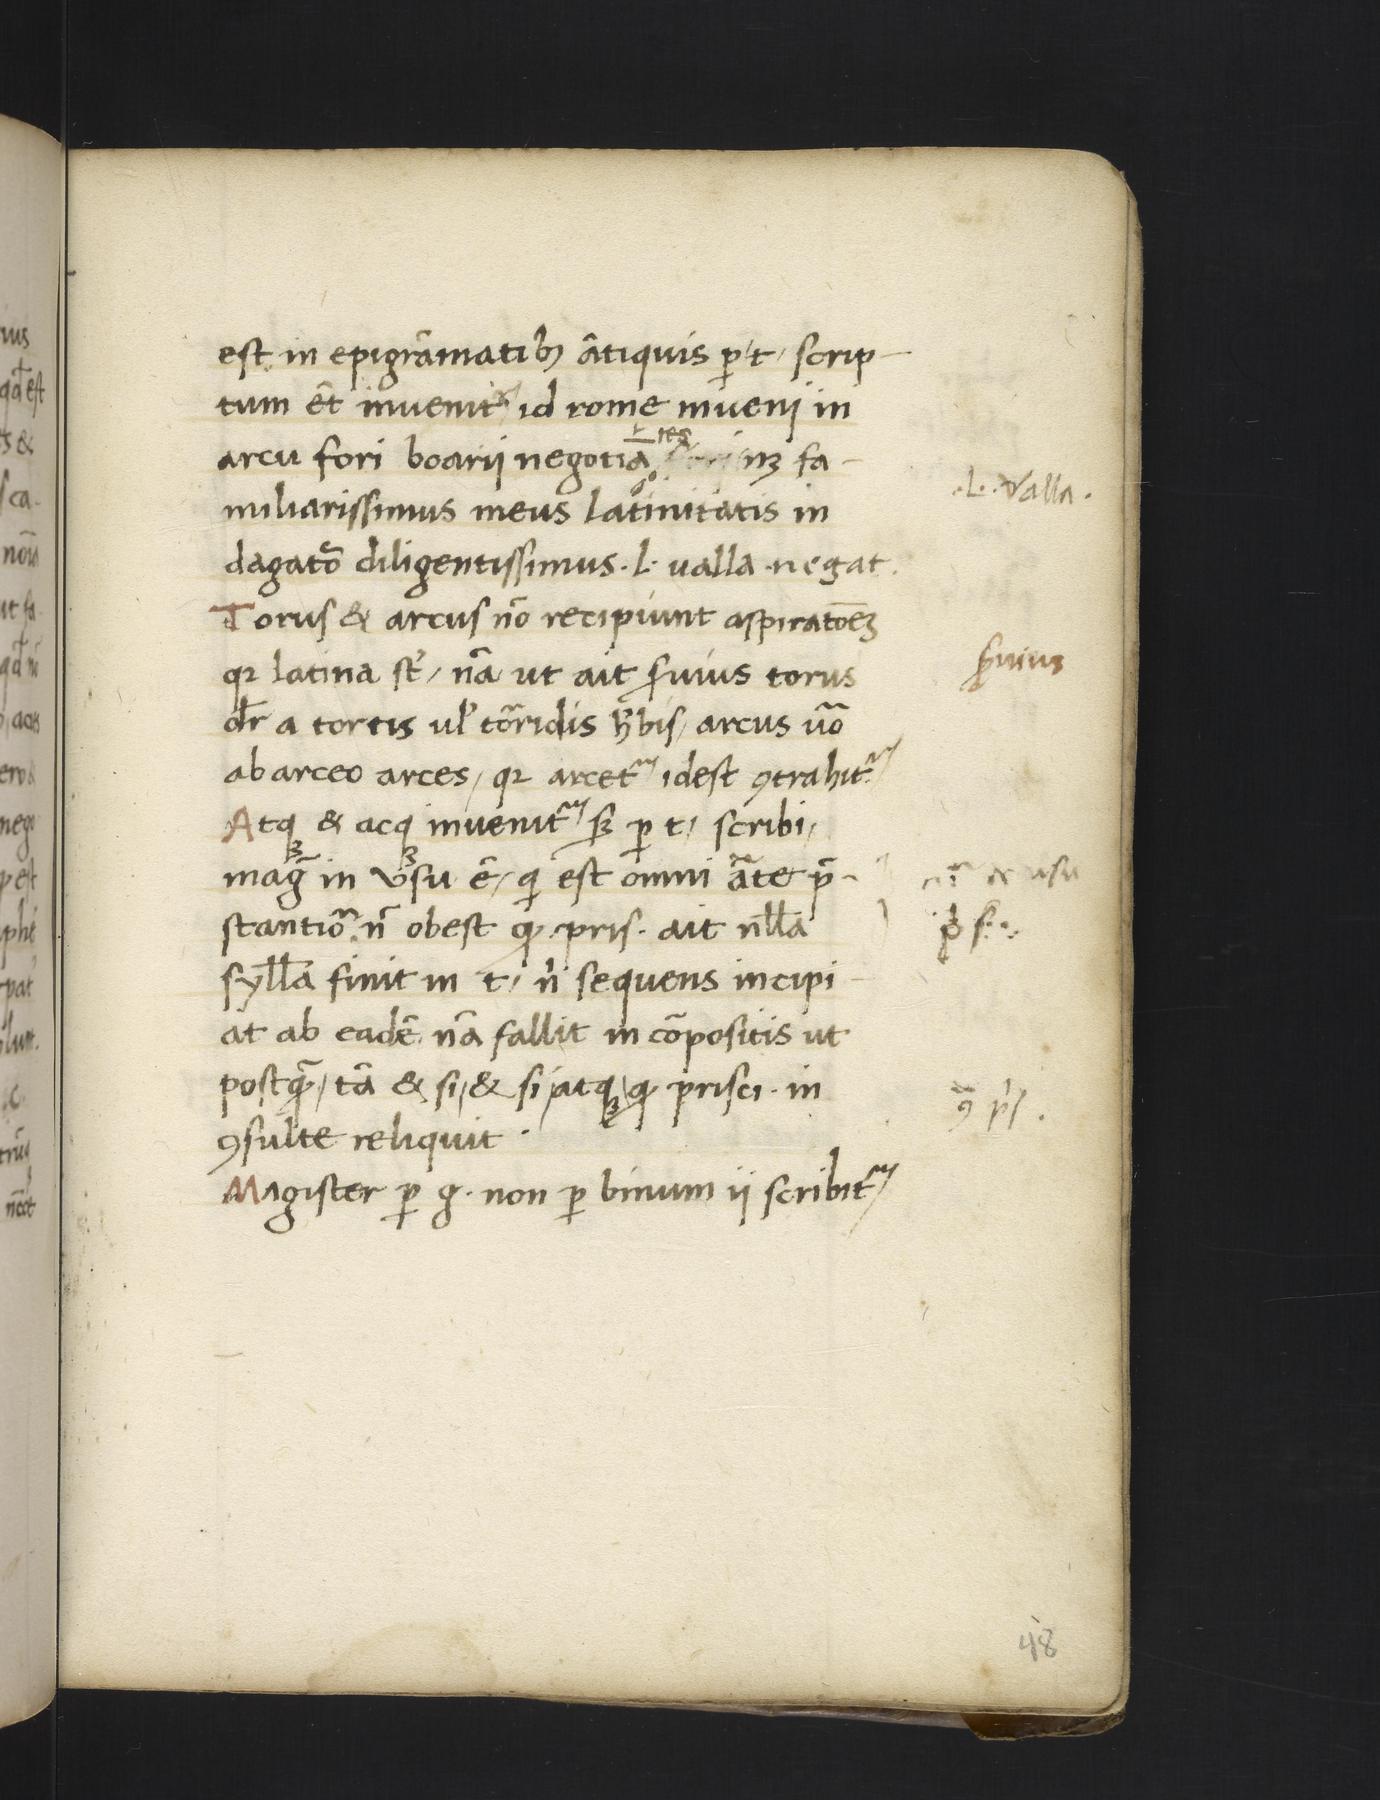 est in epigrãmatibꝫ ãtiquis ꝑ t / scrip-
tum ẽt inuenit᷑ id rome inueni in
arcu fori boarii negotiã tes fa-
miliarissimus meus latinitatis in
dagatõ diligentissimus. L. ualla negat.
Torus & arcus nõ recipiunt aspiratõeꝫ
qꝛ latina st̃ / nã ut ait ẜuius torus
dr̃ a tortis ul' tõridis h̃bis / arcus ũo
ab arceo arces / qꝛ arcet᷑ idest ꝯtrahit᷑
Atqꝫ & acqꝫ inuenit᷑ sꝫ ꝑ t / scribi /
mag̃ in ũsu ẽ / qi est omni ãte p̃-
stantiõ. ñ obest ꝙ pris. ait nll̃a
syll̃a finit in t / ñi sequens incipi-
at ab eadẽ nã fallit in cõpositis ut
postqꝫ̃ / tã & si / & si / atqꝫ / ꝙ prisci. in
ꝯsulte reliquit.
Magister ꝑ g. non ꝑ binum ii scribit᷑ /
.L. Valla.
ẜuius
usu
48